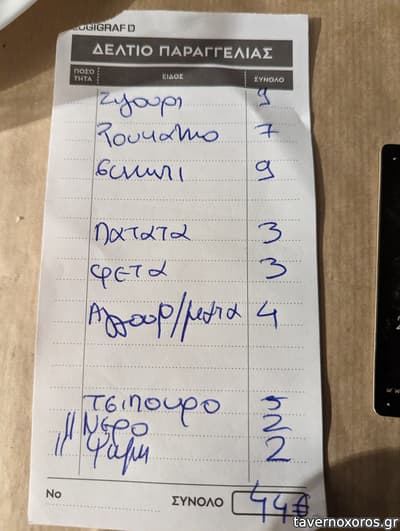 LOGIGRAF
ΔΕΛΤΙΟ ΠΑΡΑΓΓΕΛΙΑΣ
ΠΟΣΟΤΗΤΑ ΕΙΔΟΣ ΣΥΝΟΛΟ
Ζυγουρι 9
Λουκανικο 7
Συκωτι 9
Πατατα 3
φετα 3
Αγγουρ/ματα 4
Τσιπουρο 5
// Νερο 2
// Ψωμι 2
Νο ΣΥΝΟΛΟ 44€
tavernoxoros.gr